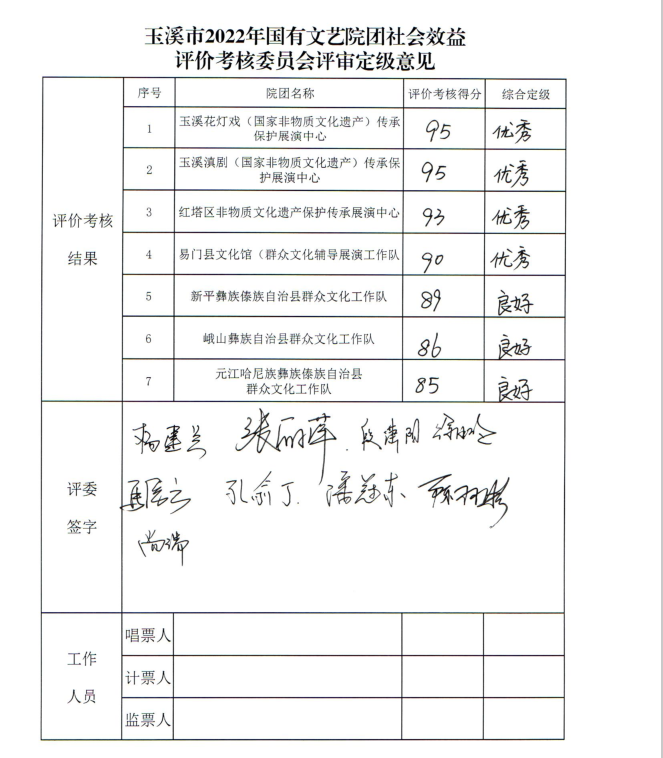 玉溪市2022年国有文艺院团社会效益
评价考核委员会评审定级意见
序号 院团名称 评价考核得分 综合定级
评价考核
结果
1 玉溪花灯戏（国家非物质文化遗产）传承
保护展演中心 95 优秀
2 玉溪滇剧（国家非物质文化遗产）传承保
护展演中心 95 优秀
3 红塔区非物质文化遗产保护传承展演中心 93 优秀
4 易门县文化馆（群众文化辅导展演工作队 90 优秀
5 新平彝族傣族自治县群众文化工作队 89 良好
6 峨山彝族自治县群众文化工作队 86 良好
7 元江哈尼族彝族傣族自治县
群众文化工作队 85 良好
评委
签字
杨建兰 张丽萍
孔俞丁 潘冠东
尚瑞
工作
人员
唱票人
计票人
监票人